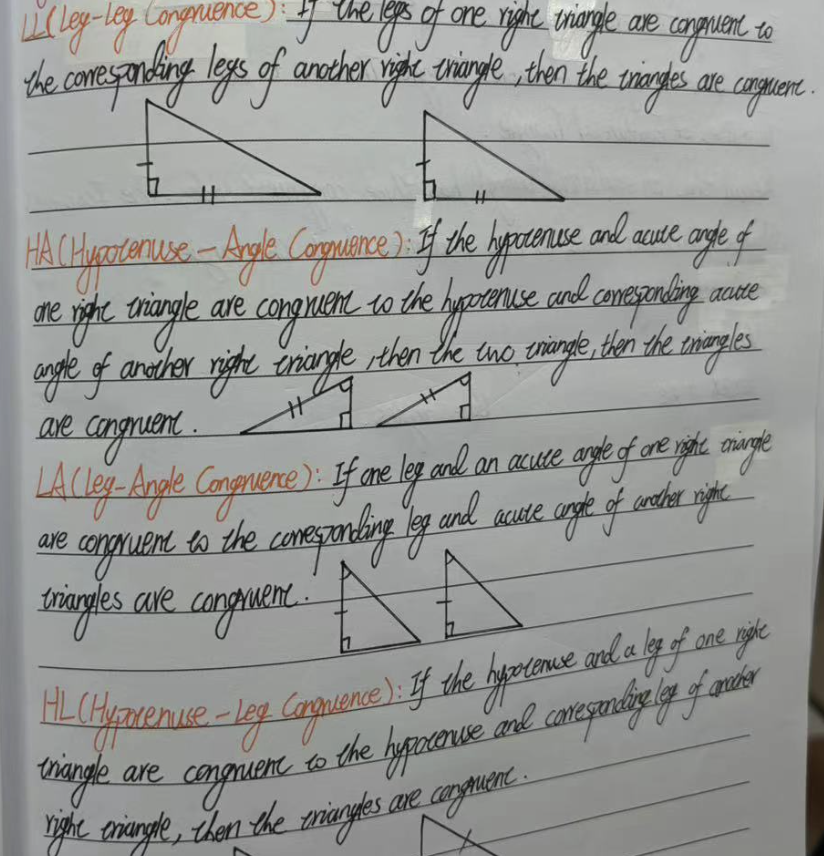 LL(Leg-Leg Congruence): If the legs of one right triangle are congruent to
the corresponding legs of another right triangle, then the triangles are congruent.
HA(Hypotenuse-Angle Congruence): If the hypotenuse and acute angle of
one right triangle are congruent to the hypotenuse and corresponding acute
angle of another right triangle, then the two triangle, then the triangles
are congruent.
LA(Leg-Angle Congruence): If one leg and an acute angle of one right triangle
are congruent to the corresponding leg and acute angle of another right
triangles are congruent.
HL(Hypotenuse-Leg Congruence): If the hypotenuse and a leg of one right
triangle are congruent to the hypotenuse and corresponding leg of another
right triangle, then the triangles are congruent.